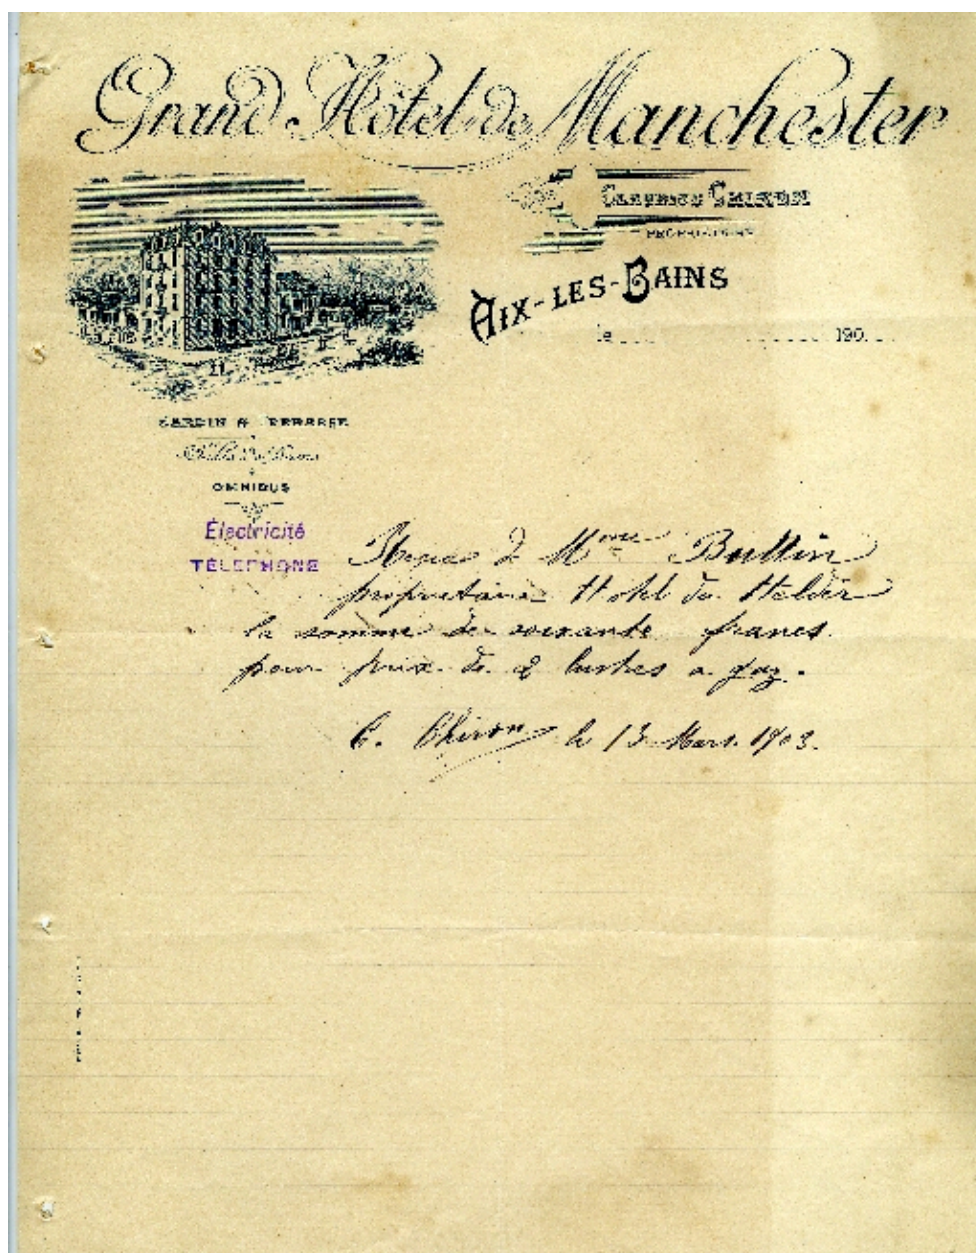 Grand Hôtel de Manchester
CHIRON
PROPRIETAIRE
AIX-LES-BAINS
le 190
JARDIN & TERRASSE
OMNIBUS
Électricité
TÉLÉPHONE
Mme Buttin
propriétaire Hotel du Helder
la somme de soixante francs
pour prix de 2 lustres a gaz.
C. Chiron le 13 Mars 1903.